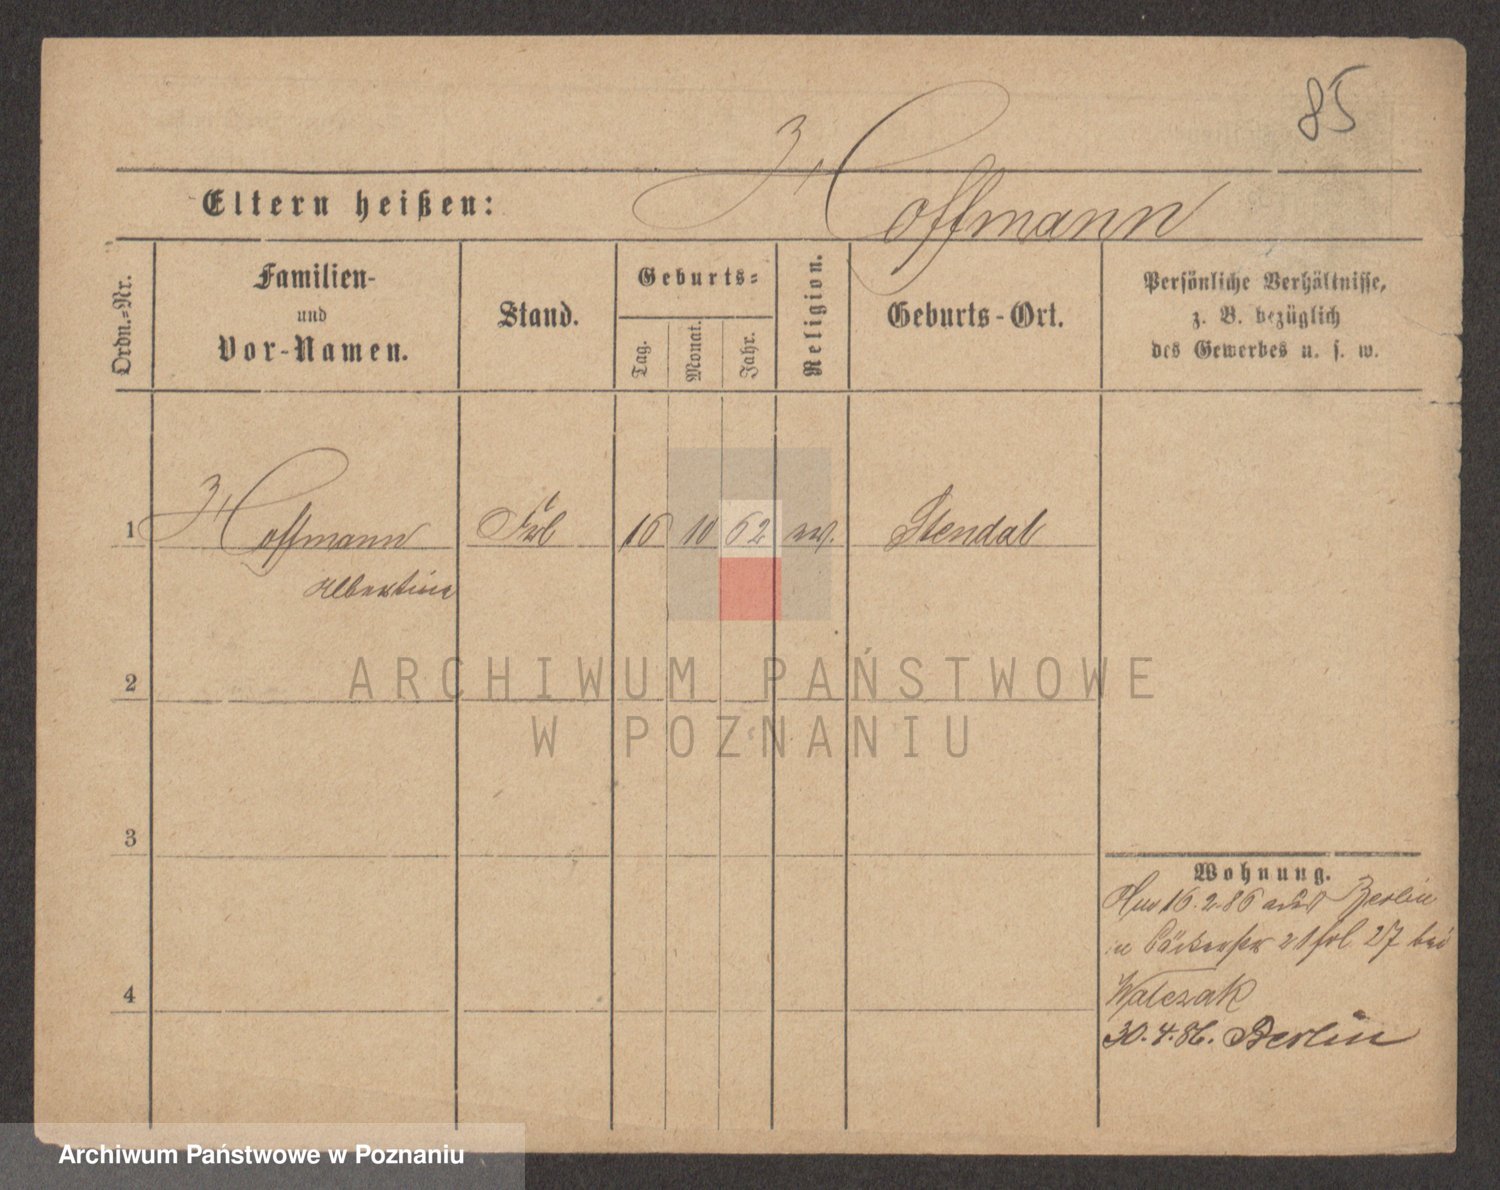 85
Hoffmann
Eltern heißen:
Ordn.-Nr.
Familien-
und
Vor-Namen.
Stand.
Geburts-
Tag.
Monat.
Jahr.
Religion.
Geburts-Ort.
Persönliche Verhältnisse,
z. B. bezüglich
des Gewerbes u. s. w.
1 Hoffmann Frl 16 10 62 ev. Stendal
Albertine
2
ARCHIWUM PAŃSTWOWE
W POZNANIU
3
Wohnung.
16.2.86 Berlin
27 bei
4
Walczak
30.4.86. Berlin
Archiwum Państwowe w Poznaniu